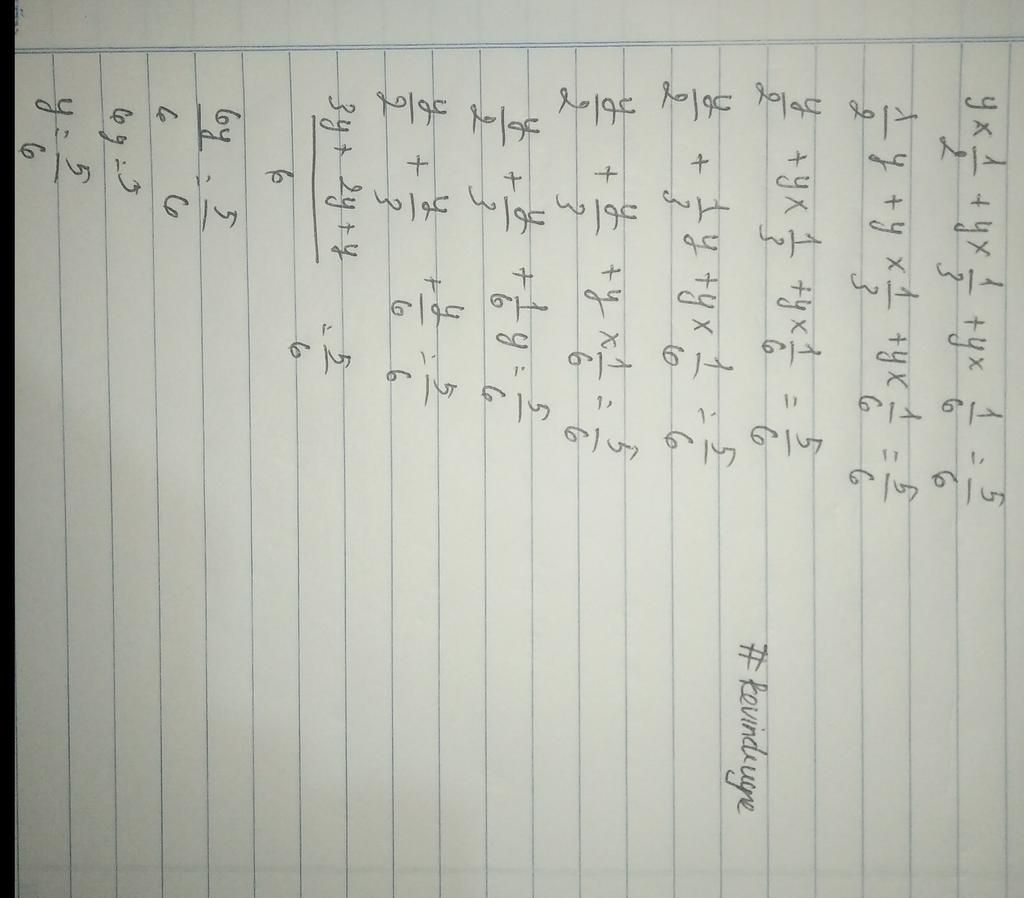 y × 1/2 + y × 1/3 + y × 1/6 = 5/6
1/2 y + y × 1/3 + y × 1/6 = 5/6
y/2 + y × 1/3 + y × 1/6 = 5/6
y/2 + 1/3 y + y × 1/6 = 5/6
y/2 + y/3 + y × 1/6 = 5/6
y/2 + y/3 + 1/6 y = 5/6
y/2 + y/3 + y/6 = 5/6
3y + 2y + y / 6 = 5/6
6y/6 = 5/6
6y = 5
y = 5/6